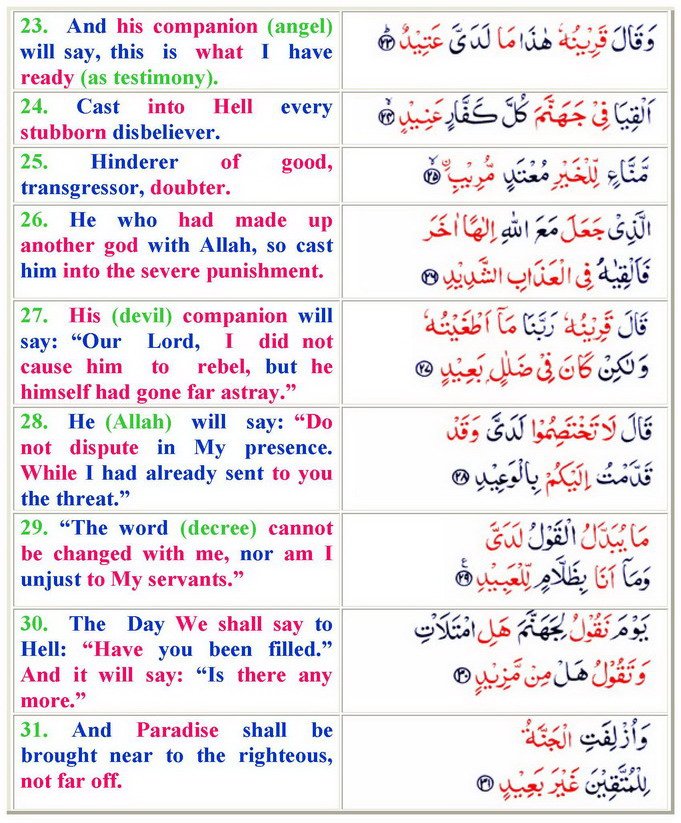 23. And his companion (angel)
will say, this is what I have
ready (as testimony).
وَقَالَ قَرِيْنُهٗ هٰذَا مَا لَدَىَّ عَتِيْدٌ ۟ؕ۲۳
24. Cast into Hell every
stubborn disbeliever.
اَلْقِيَا فِىْ جَهَنَّمَ كُلَّ كَفَّارٍ عَنِيْدٍ ۙ۲۴
25. Hinderer of good,
transgressor, doubter.
مَّنَّاعٍ لِّلْخَيْرِ مُعْتَدٍ مُّرِيْبِ ۙ۲۵
26. He who had made up
another god with Allah, so cast
him into the severe punishment.
الَّذِىْ جَعَلَ مَعَ اللّٰهِ اِلٰهًا اٰخَرَ
فَاَلْقِيٰهُ فِى الْعَذَابِ الشَّدِيْدِ ۲۶
27. His (devil) companion will
say: “Our Lord, I did not
cause him to rebel, but he
himself had gone far astray.”
قَالَ قَرِيْنُهٗ رَبَّنَا مَاۤ اَطْغَيْتُهٗ
وَلٰكِنْ كَانَ فِىْ ضَلٰلٍۢ بَعِيْدٍ ۲۷
28. He (Allah) will say: “Do
not dispute in My presence.
While I had already sent to you
the threat.”
قَالَ لَا تَخْتَصِمُوْا لَدَىَّ وَقَدْ
قَدَّمْتُ اِلَيْكُمْ بِالْوَعِيْدِ ۲۸
29. “The word (decree) cannot
be changed with me, nor am I
unjust to My servants.”
مَا يُبَدَّلُ الْقَوْلُ لَدَىَّ
وَمَاۤ اَنَا بِظَلَّامٍ لِّلْعَبِيْدِ ۲۹ع
30. The Day We shall say to
Hell: “Have you been filled.”
And it will say: “Is there any
more.”
يَوْمَ نَقُوْلُ لِجَهَنَّمَ هَلِ امْتَلَاْتِ
وَتَقُوْلُ هَلْ مِنْ مَّزِيْدٍ ۳۰
31. And Paradise shall be
brought near to the righteous,
not far off.
وَاُزْلِفَتِ الْجَنَّةُ
لِلْمُتَّقِيْنَ غَيْرَ بَعِيْدٍ ۳۱